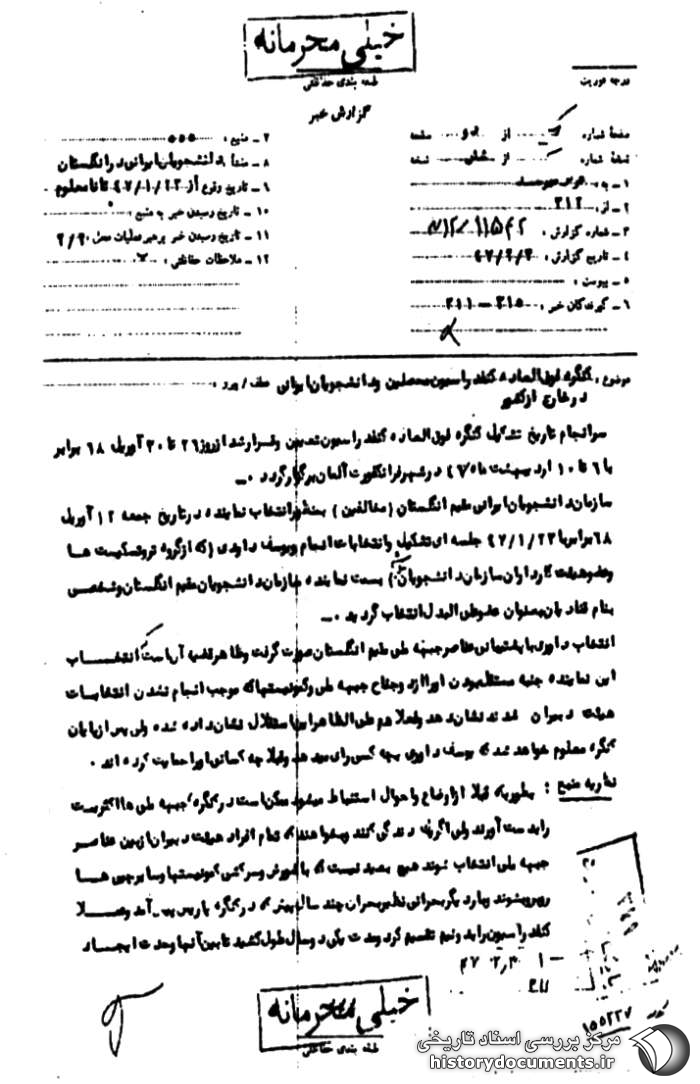 خیلی محرمانه
طبقه بندی حفاظتی
درجه فوریت
گزارش خبر
صفحه شماره یک از دو صفحه
نسخه شماره از شش نسخه
۱ ـ به :
۲ ـ از : ۳۱۲
۳ ـ شماره گزارش :
۴ ـ تاریخ گزارش : ۴۷/۲/۲
۵ ـ پیوست :
۶ ـ گیرندگان خبر : ۳۱۵ — ۳۱۱
۷ ـ منبع : ۵۵۵
۸ ـ منشأ : دانشجویان ایرانی در انگلستان
۹ ـ تاریخ وقوع : از ۴۷/۱/۲۳ تا نامعلوم
۱۰ ـ تاریخ رسیدن خبر به منبع :
۱۱ ـ تاریخ رسیدن خبر به رهبر عملیات محل :
۱۲ ـ ملاحظات حفاظتی :
موضوع : کنگره فوق العاده کنفدراسیون محصلین و دانشجویان ایرانی عطف / پیرو :
در خارج از کشور
سرانجام تاریخ تشکیل کنگره فوق العاده کنفدراسیون تعیین و قرار شد از روز ۲۶ تا ۳۰ آوریل ۶۸ برابر
با ۶ تا ۱۰ اردیبهشت ماه ۴۷ در شهر فرانکفورت آلمان برگزار گردد ۰ــ
سازمان دانشجویان ایرانی مقیم انگلستان (مخالفین) بمنظور انتخاب نماینده در تاریخ جمعه ۱۲ آوریل
۶۸ برابر با ۴۷/۱/۲۳ جلسه ای تشکیل و انتخابات انجام و یوسف داوری (که از گروه تروتسکیست ها
و عضو هیئت کارداران سازمان دانشجویان) بسمت نماینده سازمان دانشجویان مقیم انگلستان و شخصی
بنام قنادیان بعنوان عضو علی البدل انتخاب گردید ۰ــ
انتخاب داوری با پشتیبانی عناصر جبهه ملی مقیم انگلستان صورت گرفت و ظاهر قضیه آن است انتخاب
این نماینده جنبه مستقل بودن او را از دو جناح جبهه ملی و کمونیستها که موجب انجام نشدن انتخابات
هیئت دبیران شدند نشان دهد و فعلا هم علی الظاهر این استقلال نشان داده شده ولی پس از پایان
کنگره معلوم خواهد شد که یوسف داوری بچه کسی رای میدهد و قبلا چه کسانی او را حمایت کرده اند ۰
نظریه منبع : بطوریکه قبلا از اوضاع و احوال استنباط میشود ممکن است در کنگره جبهه ملی ها اکثریت
را بدست آورند ولی اگر یک دندگی کنند و بخواهند که تمام افراد هیئت دبیران از بین عناصر
جبهه ملی انتخاب شوند هیچ بعید نیست که با شورش و سرکشی کمونیستها و سایر چپی ها
روبرو شوند و بار دیگر بحرانی نظیر بحران چند سال پیش که در کنگره پاریس پیش آمد و عملا
کنفدراسیون را بدو نیم تقسیم کرد و مدت یکی دو سال طول کشید تا بین آنها وحدت ایجاد
۱ —
خیلی محرمانه
طبقه بندی حفاظتی
۱۵۵۲۲۷
مرکز بررسی اسناد تاریخی
historydocuments.ir